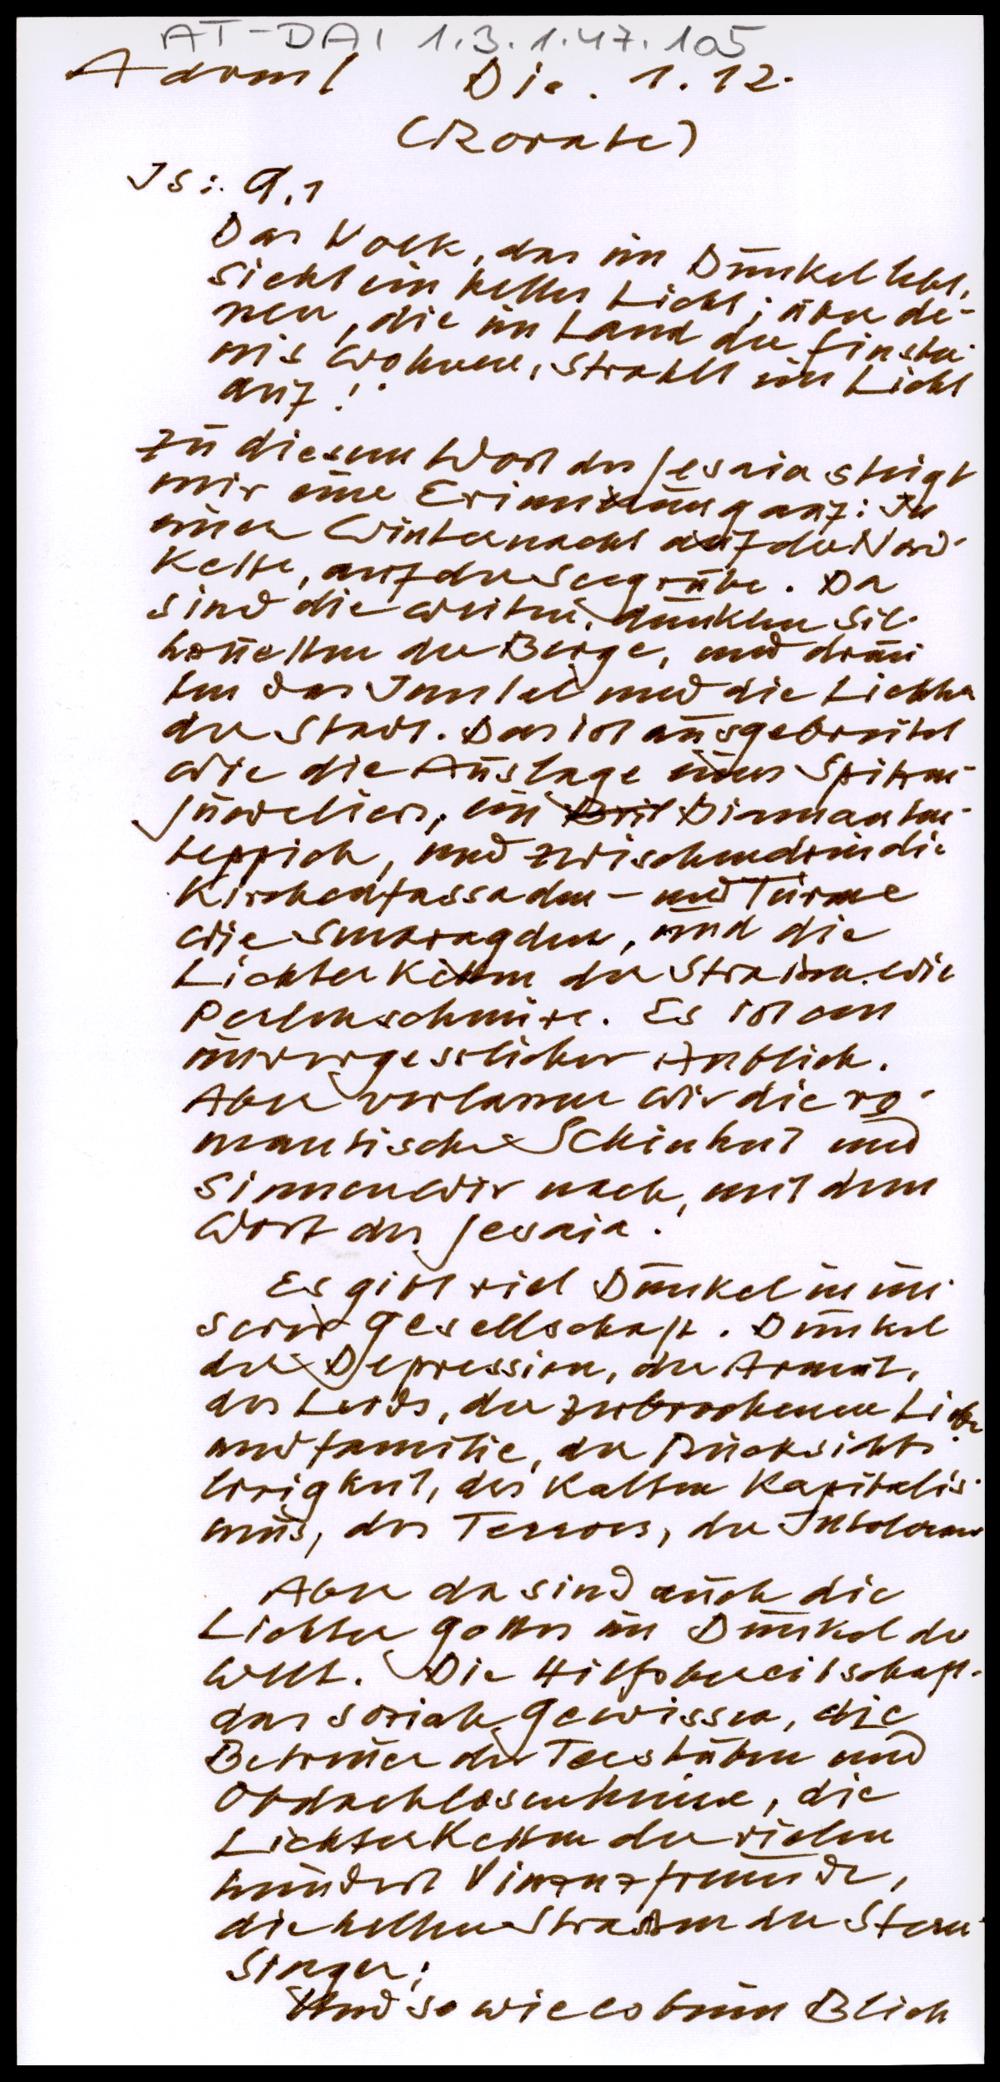 AT-DAI 1.3.1.47.105
Advent Die. 1.12.
(Rorate)
Js: 9,1
Das Volk, das im Dunkel lebt,
sieht ein helles Licht; über de-
nen, die im Land der Finster-
nis wohnen, strahlt ein Licht
auf!
Zu diesem Wort des Jesaia steigt
mir eine Erinnerung auf: In
einer Winternacht auf der Nord-
kette, auf der Seegrube. Da
sind die weiten, dunklen Sil-
houetten der Berge, und drun
ten das Inntal und die Lichter
der Stadt. Das ist ausgebreitet
wie die Auslage eines Spitzen-
juweliers, ein Diamanten-
teppich, und zwischendrin die
Kirchenfassaden - und Türme
wie Smaragden, und die
Lichterketten der Strassen wie
Perlenschnüre. Es ist ein
unvergesslicher Anblick.
Aber verlassen wir die ro-
mantische Schönheit und
sinnen wir nach, mit dem
Wort des Jesaia.
Es gibt viel Dunkel in un-
serer Gesellschaft. Dunkel
der Depression, der Armut,
des Leids, der zerbrochenen Liebe
und Familie, der Rücksichts-
losigkeit, des kalten Kapitalis-
mus, des Terrors, der Intoleranz
Aber da sind auch die
Lichter Gottes im Dunkel der
Welt. Die Hilfsbereitschaft,
das soziale Gewissen, die
Betreuer der Teestuben und
Obdachlosenheime, die
Lichterketten der vielen
hundert Vinzenzfreunde,
die hellen Strassen der Stern-
singer;
Und so wie es beim Blick